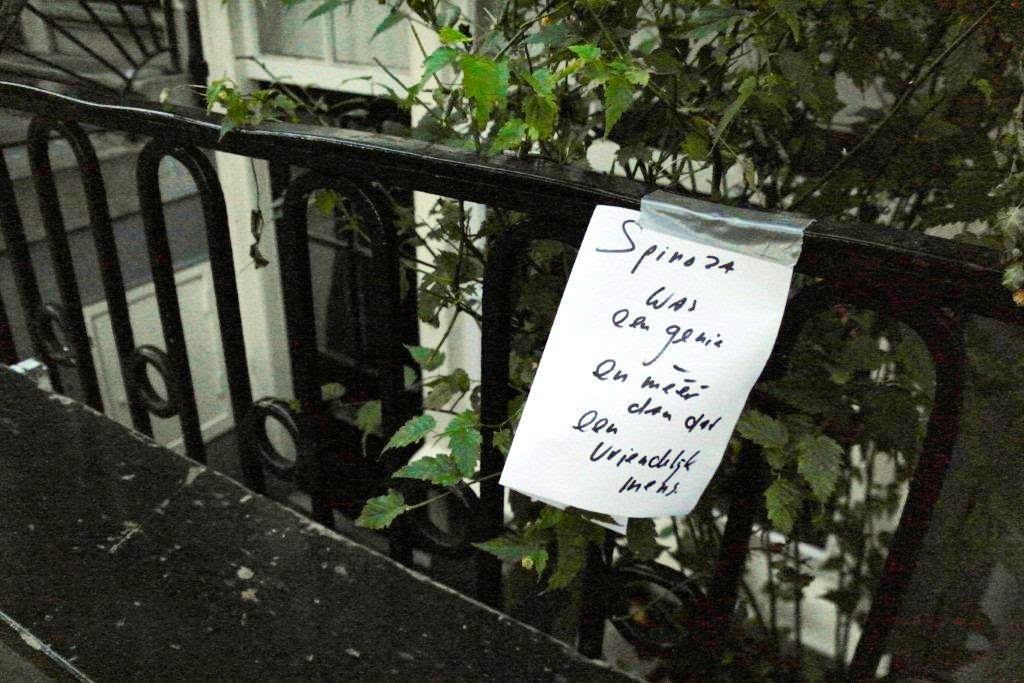 Spinoza
was
een genie
en méér
dan dat
een
vriendelijk
mens.